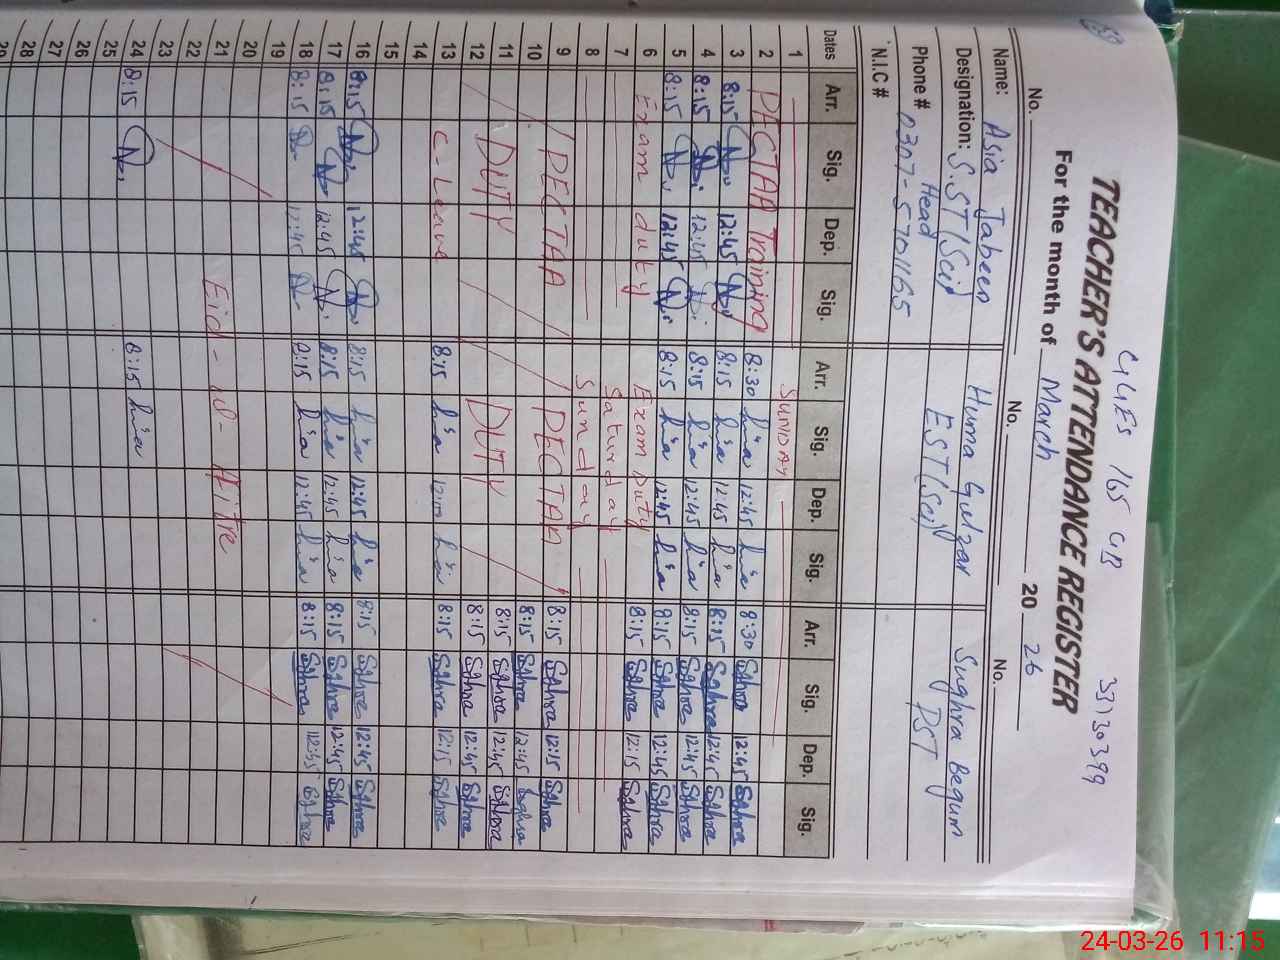 GGES 165 GB 33130399
TEACHER'S ATTENDANCE REGISTER
For the month of March 20 26
No. No. No.
Name: Asia Jabeen Huma Gulzar Sughra Begum
Designation: S.ST(Sci) EST(Sci) PST
Head
Phone # 0307-5701165
N.I.C #
Dates Arr. Sig. Dep. Sig. Arr. Sig. Dep. Sig. Arr. Sig. Dep. Sig.
1 SUNDAY
2 PECTAA Training 8:30 12:45 8:30 Sghra 12:45 Sghra
3 8:15 12:45 8:15 12:45 8:15 Sghra 12:45 Sghra
4 8:15 12:45 8:15 12:45 8:15 Sghra 12:45 Sghra
5 8:15 12:45 8:15 12:45 8:15 Sghra 12:45 Sghra
6 Exam duty Exam Duty 8:15 Sghra 12:15 Sghra
7 Saturday
8 Sunday
9 PECTAA PECTAA 8:15 Sghra 12:15 Sghra
10 8:15 Sghra 12:45 Sghra
11 8:15 Sghra 12:45 Sghra
12 DUTY DUTY 8:15 Sghra 12:45 Sghra
13 C-Leave 8:15 8:15 Sghra 12:15 Sghra
14
15
16 8:15 12:45 8:15 12:45 8:15 Sghra 12:45 Sghra
17 8:15 12:45 8:15 12:45 8:15 Sghra 12:45 Sghra
18 8:15 12:45 8:15 12:45 8:15 Sghra 12:45 Sghra
19
20
21 Eid-ul-Fitre
22
23
24 8:15 8:15
25
26
27
28
29
24-03-26 11:15